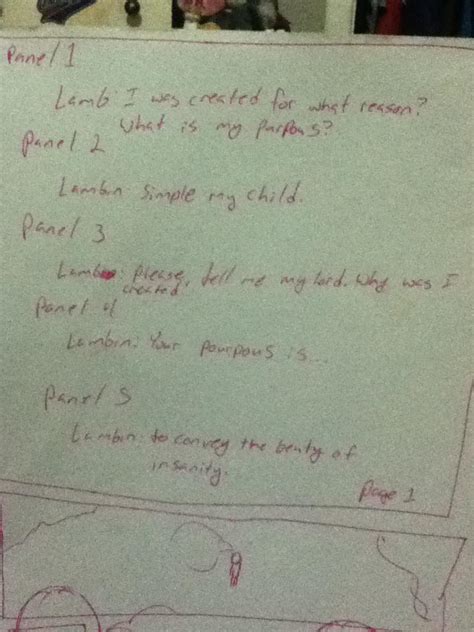 Panel 1
Lamb: I was created for what reason?
What is my purpous?
Panel 2
Lambin: Simple my child.
Panel 3
Lamb: please, tell me my lord. Why was I
created
Panel 4
Lambin: Your pourpous is...
Panel 5
Lambin: to convey the beuty of
insanity.
Page 1